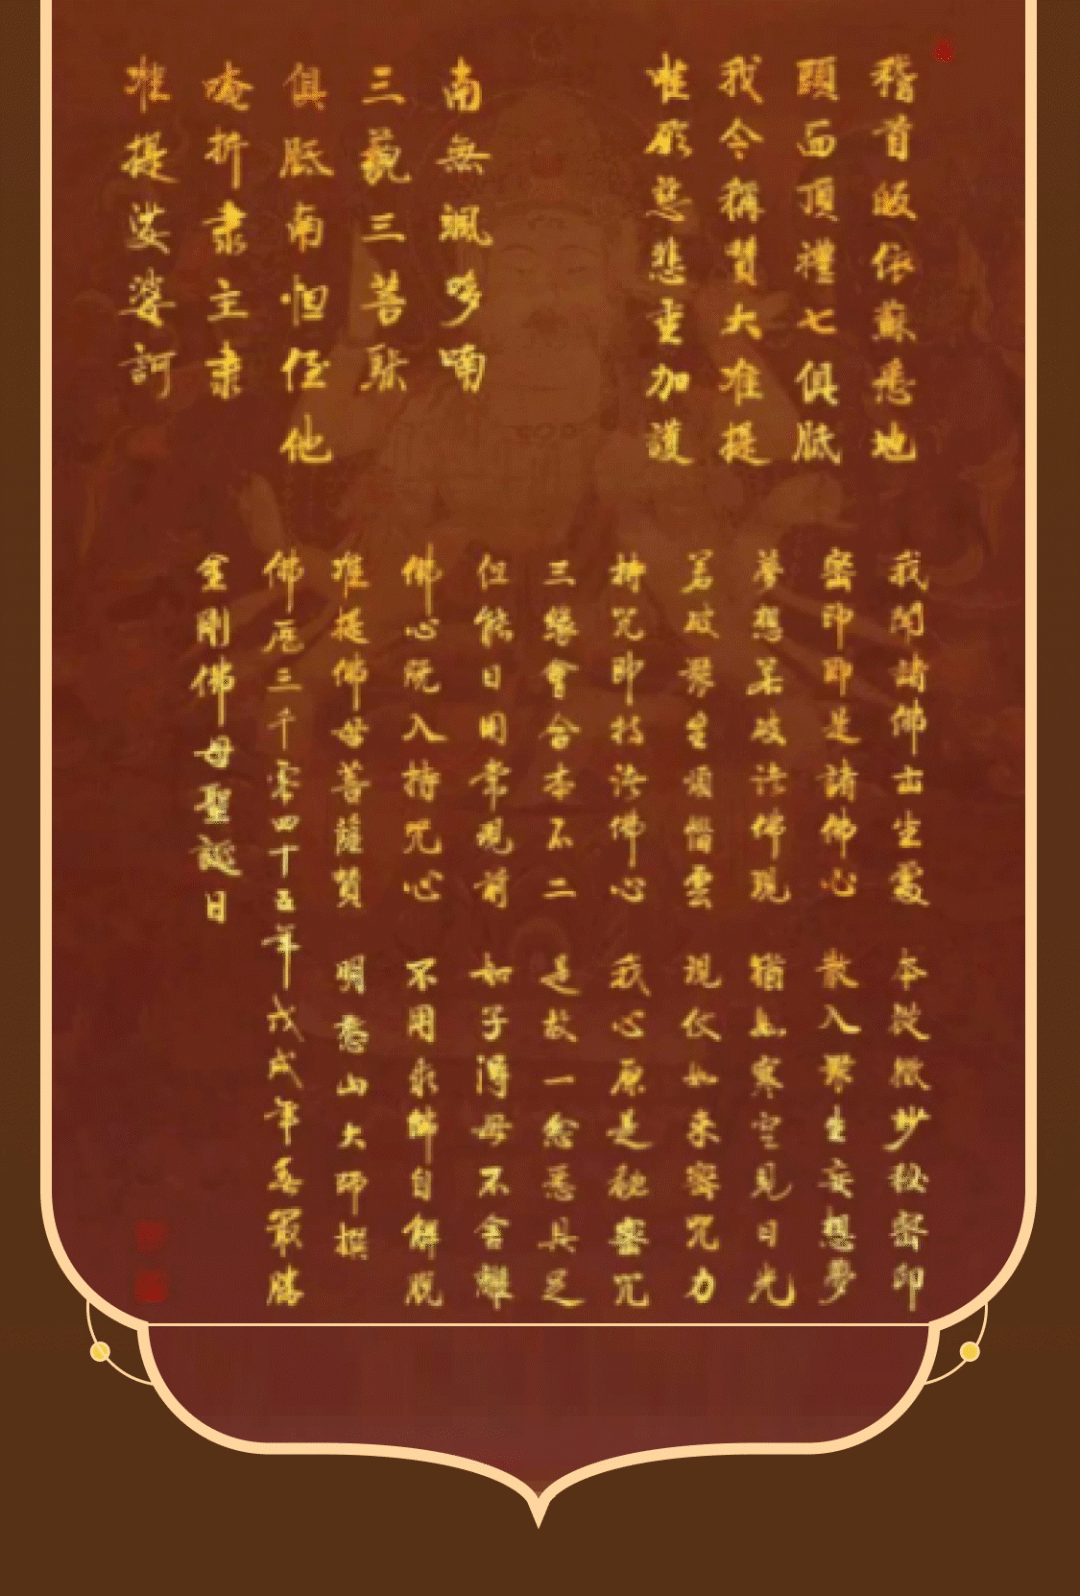 稽首皈依蘇悉地
頭面頂禮七俱胝
我今稱贊大准提
惟願慈悲垂加護
南無颯哆喃
三藐三菩馱
俱胝南怛侄他
唵折隶主隶
准提娑婆訶
我聞諸佛出生處 本從微妙秘密印
密印即是諸佛心 散入眾生妄想夢
夢想若破诸佛現 猶如寒空見日光
若破眾生煩惱雲 現仗如来密咒力
持咒即持诸佛心 我心原是秘密咒
三緣會合本不二 是故一念悉具足
但能日用常現前 如子得母不舍離
佛心既入持咒心 不用求解自解脱
准提佛母菩薩贊 明憨山大師撰
佛历三千零四十五年戊戌年最勝
金剛佛母聖誕日